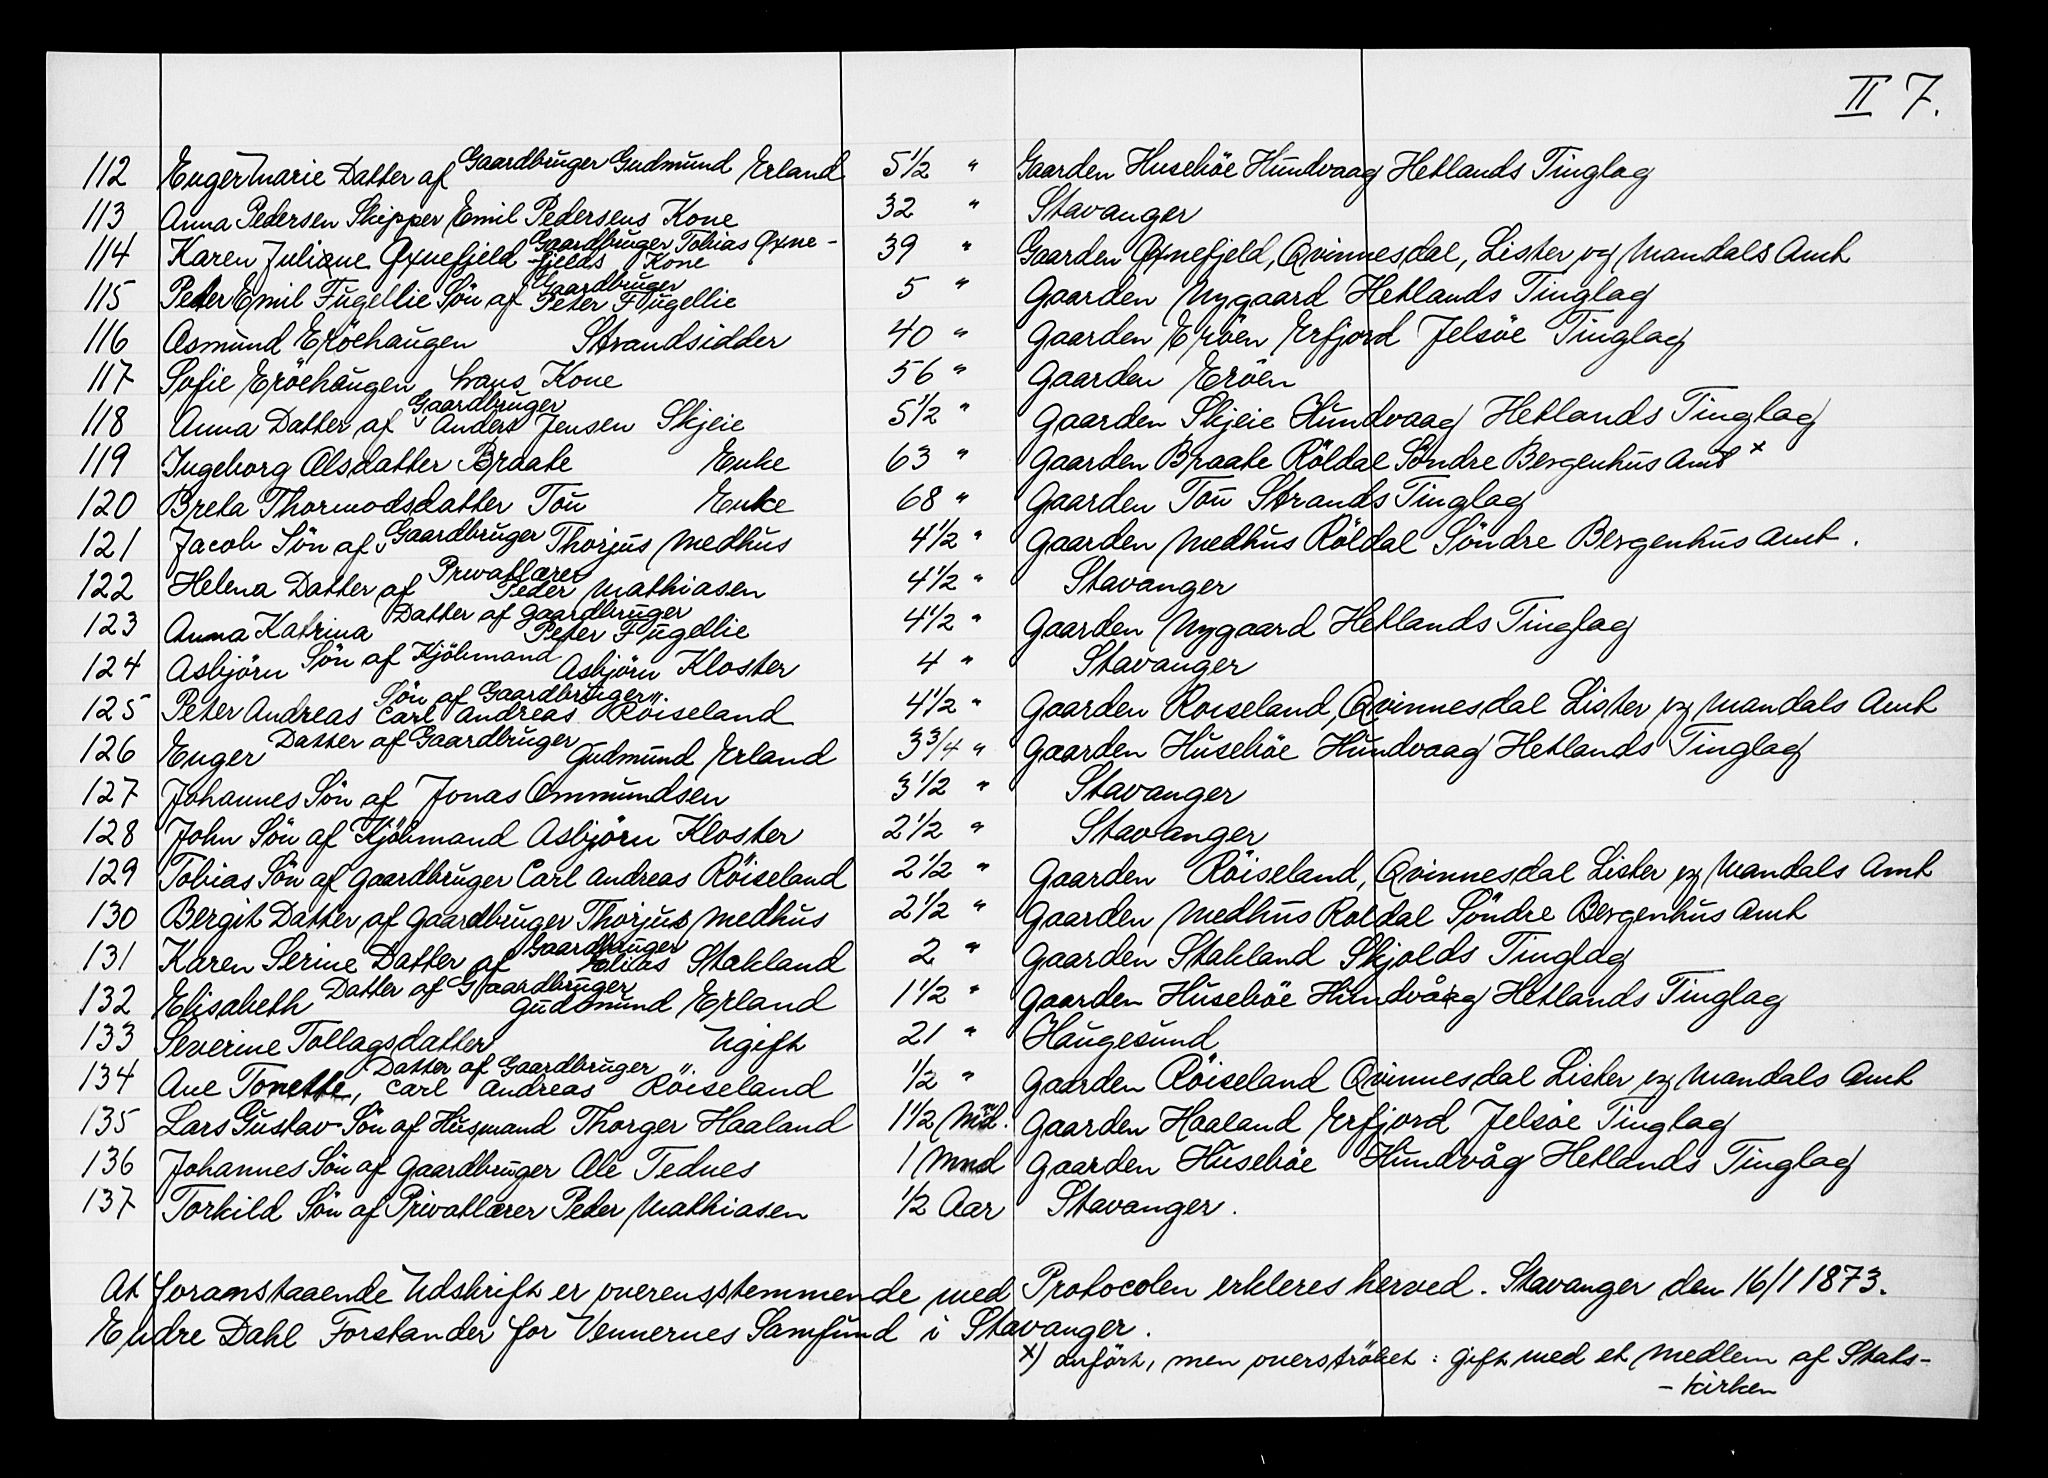 II 7.
112 Enger Marie Datter af Gaardbruger Gudmund Erland 5½ " Gaarden Huseböe Hundvaag Hetlands Tinglag
113 Anna Pedersen Skipper Emil Pedersens Kone 32 " Stavanger
114 Karen Juliane Oxnefjeld Gaardbruger Tobias Oxne-fjelds Kone 39 " Gaarden Oxnefjeld, Qvinnesdal, Lister og Mandals Amt
115 Peter Emil Fugellie Sön af Gaardbruger Peter Fugellie 5 " Gaarden Nygaard Hetlands Tinglag
116 Asmund Eröehaugen Strandsidder 40 " Gaarden Eröen Erfjord Jelsöe Tinglag
117 Sofie Eröehaugen hans Kone 56 " Gaarden Eröen
118 Anna Datter af Gaardbruger Anders Jensen Skjeie 5½ " Gaarden Skjeie Hundvaag Hetlands Tinglag
119 Ingeborg Olsdatter Braate Enke 63 " Gaarden Braate Röldal Söndre Bergenhus Amt x
120 Breta Thormodsdatter Tou Enke 68 " Gaarden Tou Strands Tinglag
121 Jacob Sön af Gaardbruger Thorjus Medhus 4½ " Gaarden Medhus Röldal Söndre Bergenhus Amt.
122 Helena Datter af Privatlærer Peder Mathiasen 4½ " Stavanger
123 Anna Katrina Datter af Gaardbruger Peter Fugellie 4½ " Gaarden Nygaard Hetlands Tinglag
124 Asbjörn Sön af Kjöbmand Asbjörn Kloster 4 " Stavanger
125 Peter Andreas Sön af Gaardbruger Carl Andreas Röiseland 4½ " Gaarden Roiseland, Qvinnesdal Lister og Mandals Amt
126 Enger Datter af Gaardbruger Gudmund Erland 3¾ " Gaarden Huseböe Hundvaag Hetlands Tinglag
127 Johannes Sön af Jonas Ommundsen 3½ " Stavanger
128 John Sön af Kjöbmand Asbjörn Kloster 2½ " Stavanger
129 Tobias Sön af Gaardbruger Carl Andreas Röiseland 2½ " Gaarden Röiseland, Qvinnesdal Lister og Mandals Amt
130 Bergit Datter af Gaardbruger Thorjus Medhus 2½ " Gaarden Medhus Roldal Söndre Bergenhus Amt
131 Karen Serine Datter af Gaardbruger Tobias Stakland 2 " Gaarden Stakland Skjolds Tinglag
132 Elisabeth Datter af Gaardbruger Gudmund Erland 1½ " Gaarden Huseböe Hundvåg Hetlands Tinglag
133 Severine Tollagsdatter Ugift 21 " Haugesund
134 Ane Tonette, Datter af Gaardbruger Carl Andreas Röiseland ½ " Gaarden Röiseland Qvinnesdal Lister og Mandals Amt
135 Lars Gustav Sön af Husmand Thorger Haaland 1½ Mnd. Gaarden Haaland Erfjord Jelsöe Tinglag
136 Johannes Sön af Gaardbruger Ole Tednes 1 Mnd Gaarden Huseböe Hundvåg Hetlands Tinglag
137 Torkild Sön af Privatlærer Peder Mathiasen ½ Aar Stavanger.
At foranstaaende Udskrift er overensstemmende med Protocolen erkleres herved. Stavanger den 16/1 1873.
Endre Dahl Forstander for Vennernes Samfund i Stavanger.
x) anfört, men overströket : gift med et medlem af Stats-
-kirken